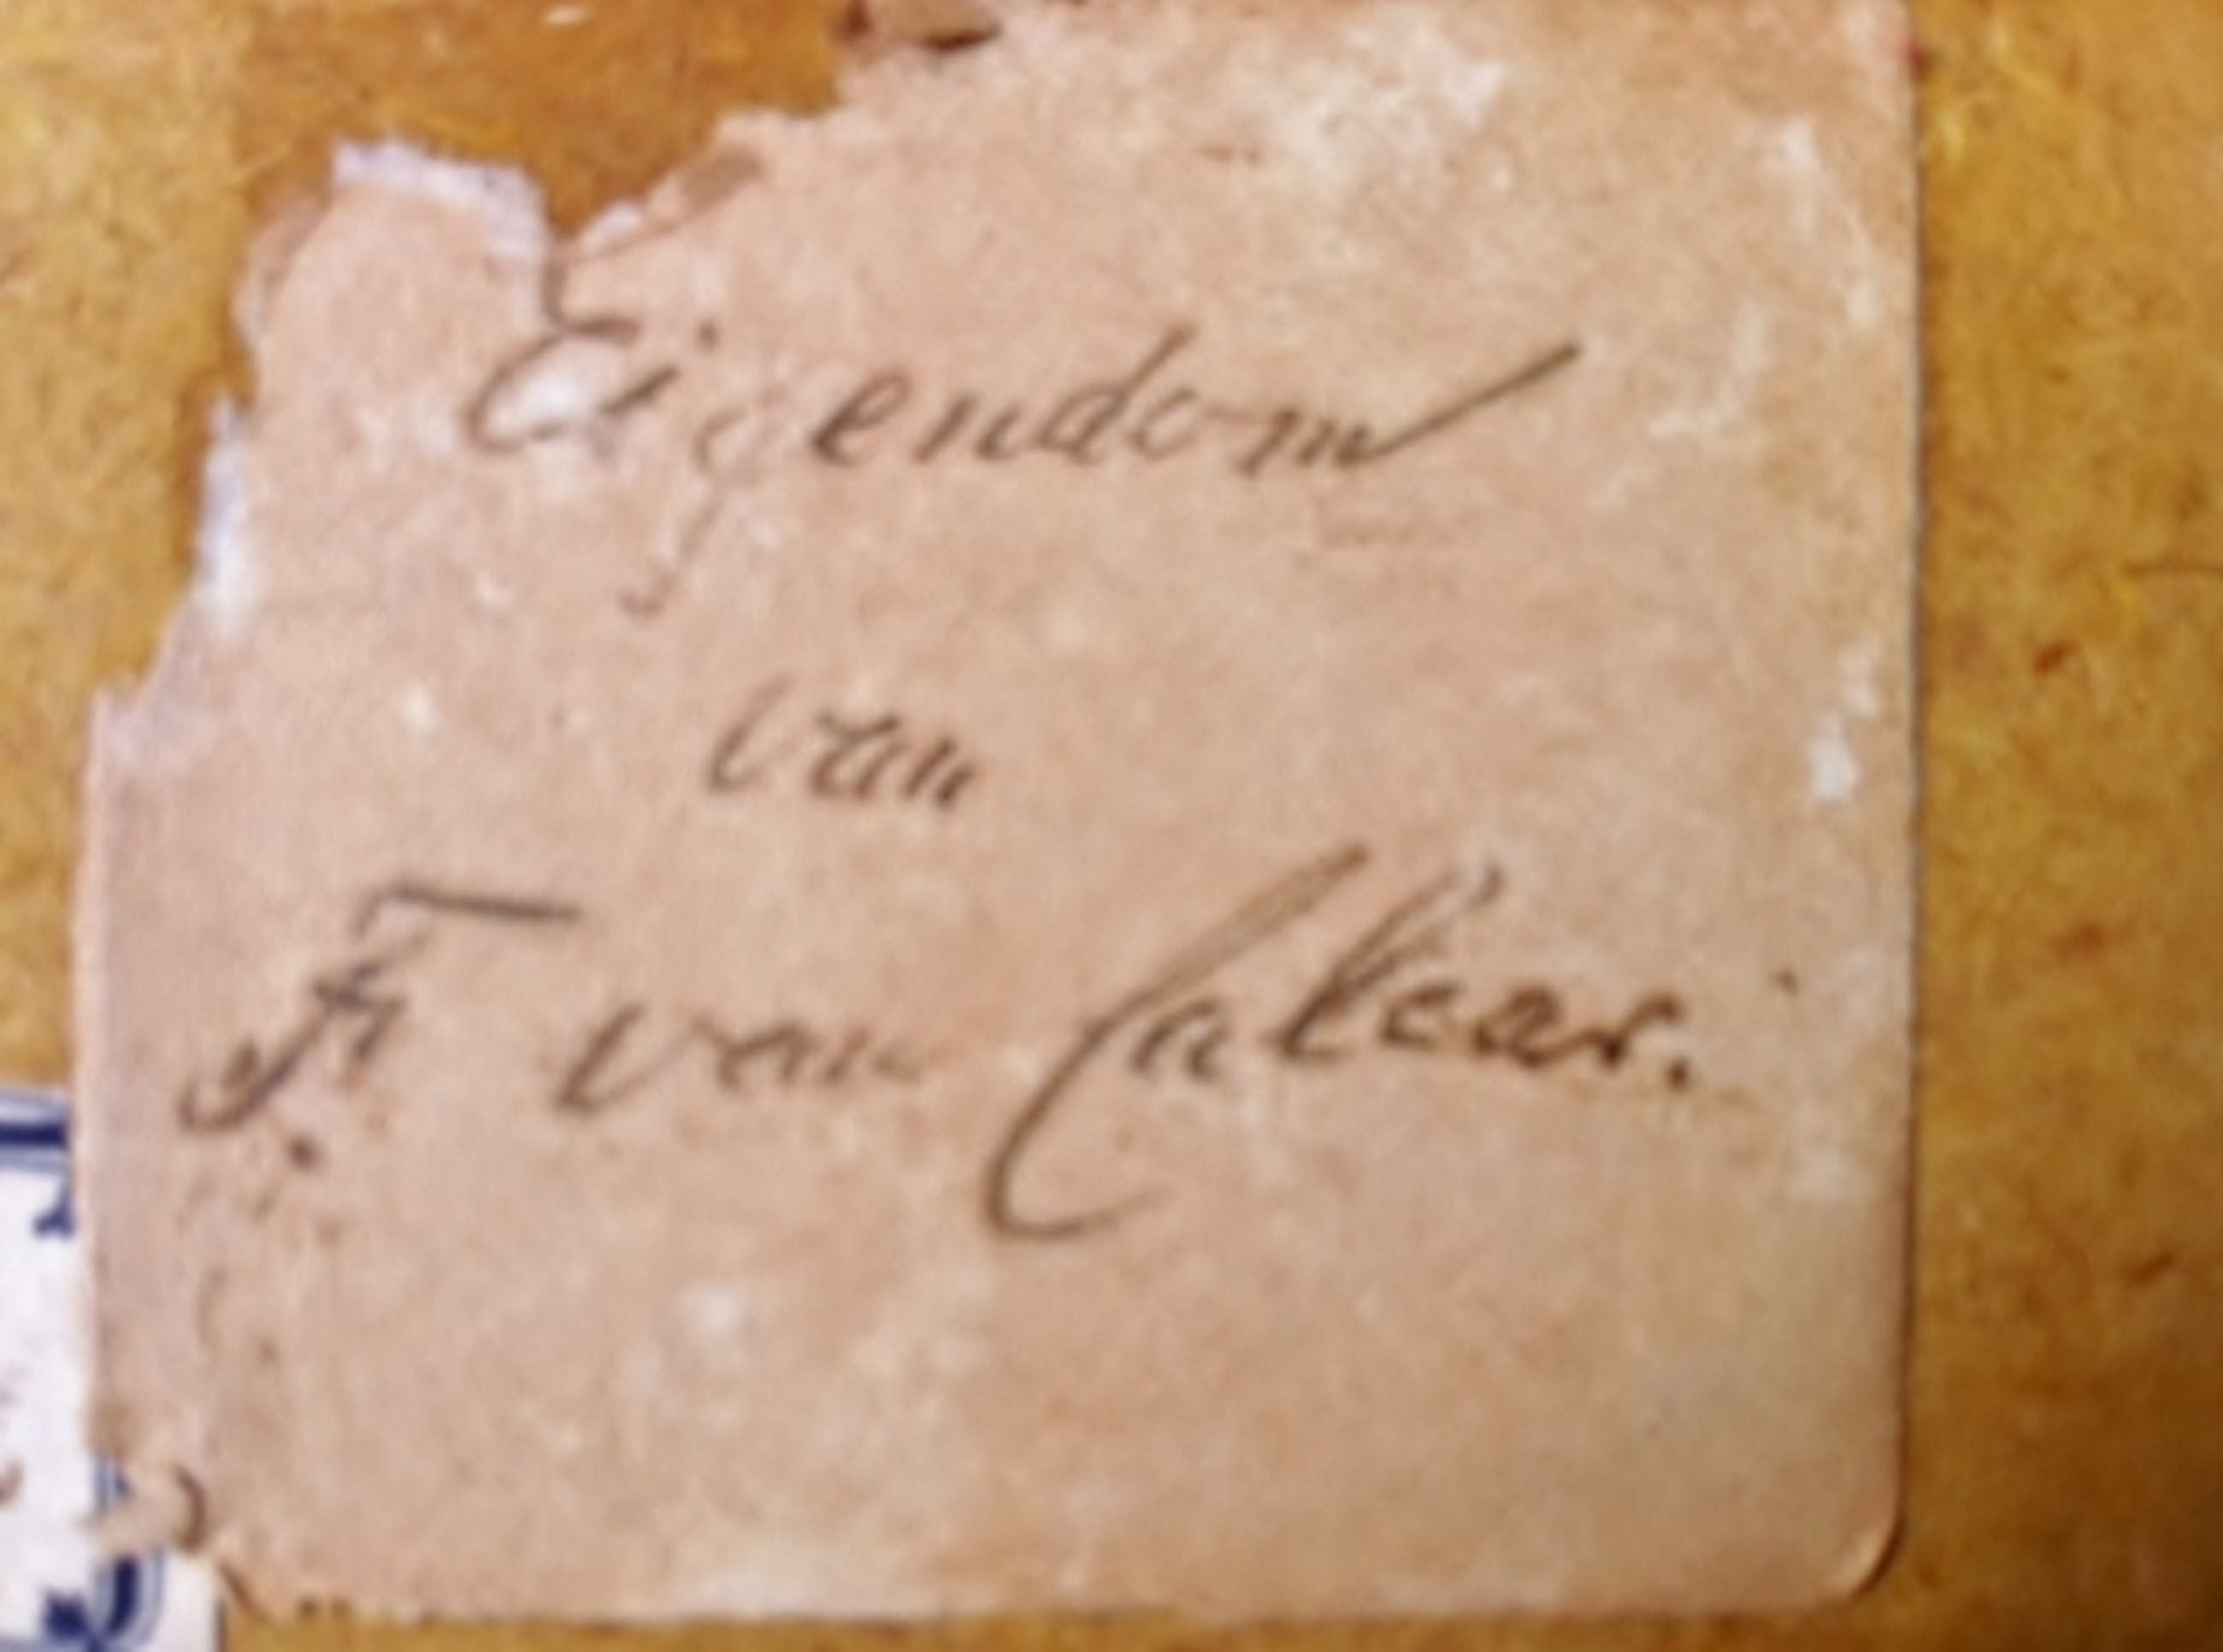 Eigendom
van
F. van Calcar.